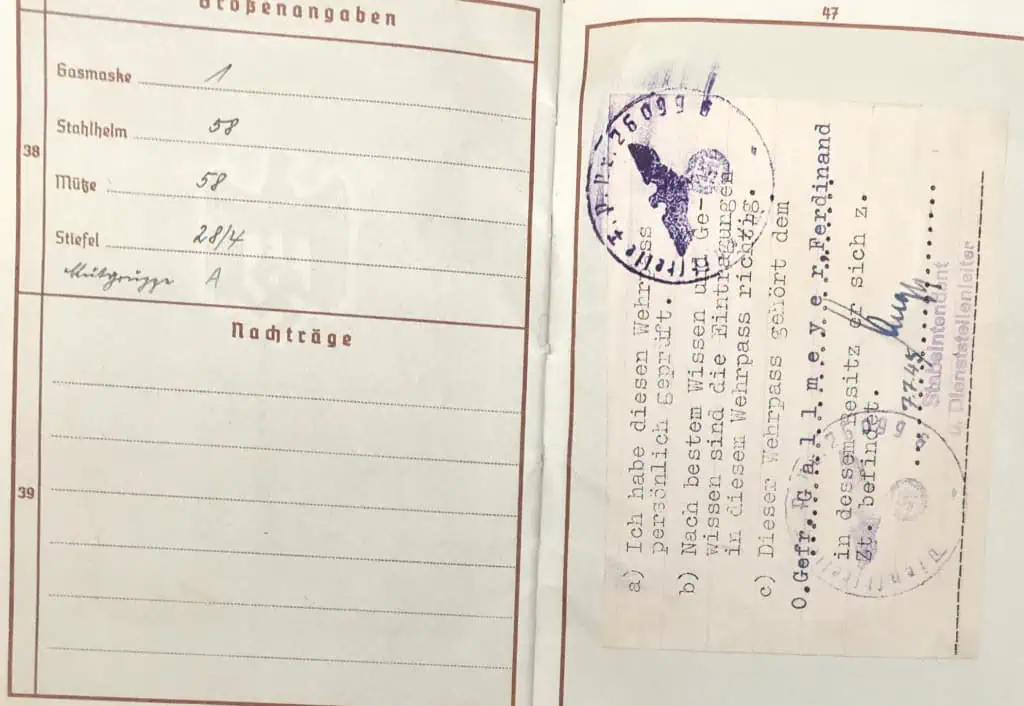 Größenangaben
38
Gasmaske 1
Stahlhelm 58
Mütze 58
Stiefel 28/4
Blutgruppe A
39
Nachträge
47
a) Ich habe diesen Wehrpass
persönlich geprüft.
b) Nach bestem Wissen und Ge-
wissen sind die Eintragungen
in diesem Wehrpass richtig.
c) Dieser Wehrpass gehört dem
O.Gefr. G a l l m e y e r, Ferdinand
in dessem Besitz er sich z.
Zt. befindet.
Stabsintendant
u. Dienststellenleiter
Dienststelle F.P.Nr. 26099
Dienststelle